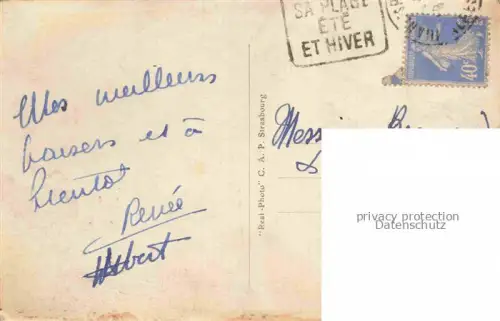 SA PLAGE
ÉTÉ
ET HIVER
40c
Mes meilleurs
baisers et à
bientôt
Renée
"Real-Photo" C. A. P. Strasbourg
privacy protection
Datenschutz